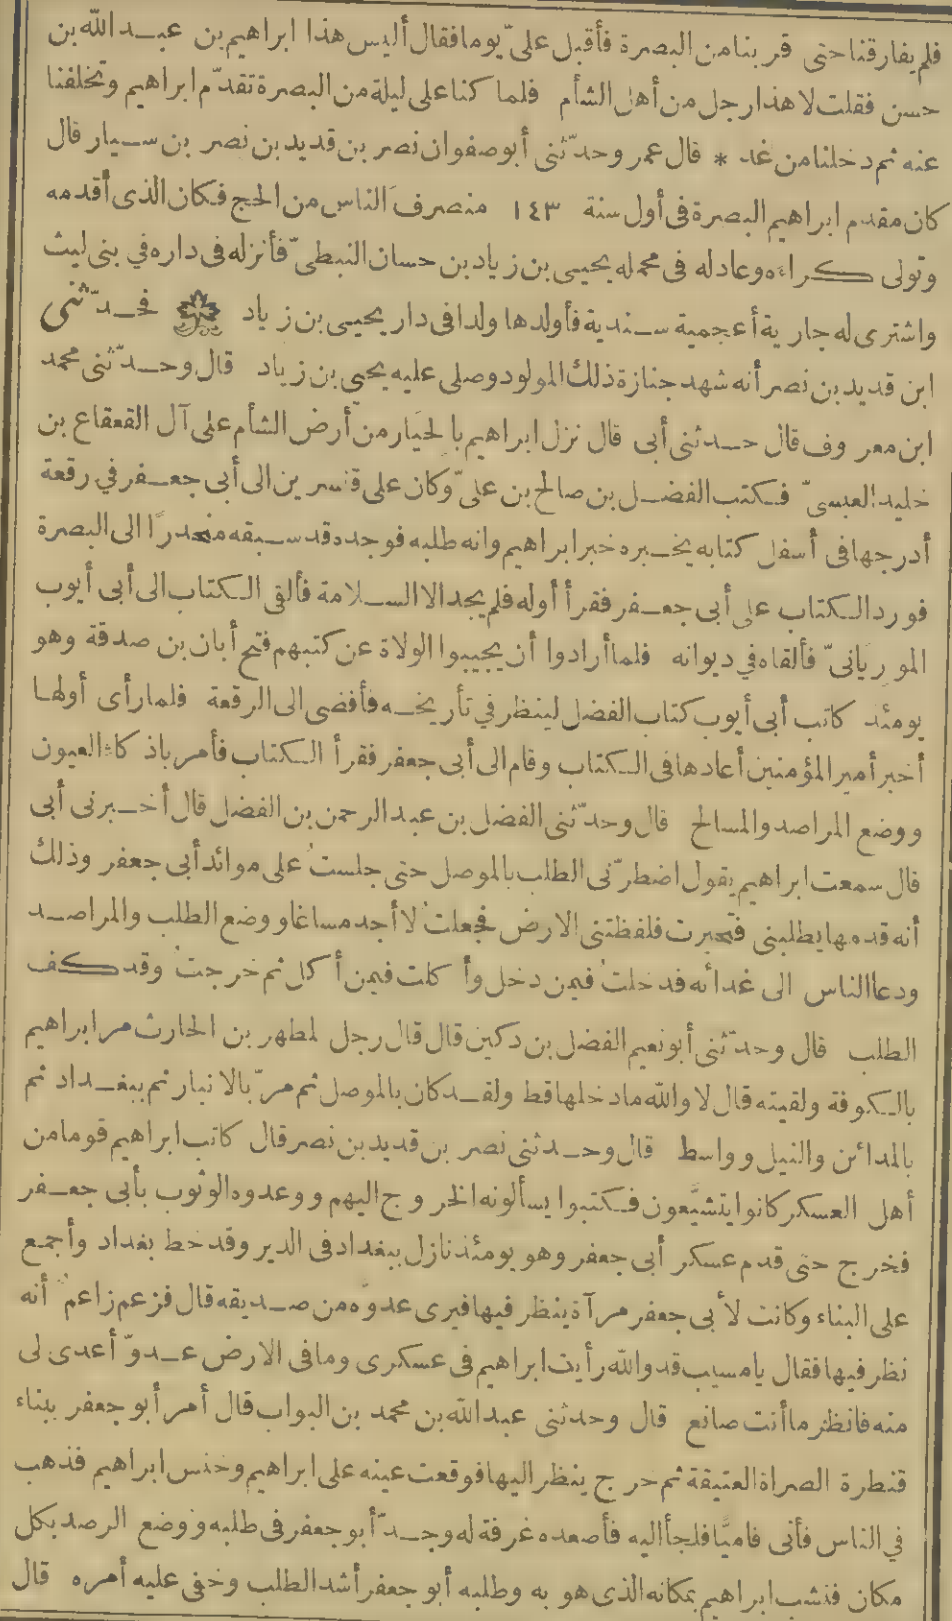 فلم يفارقنا حتى قربنا من البصرة فأقبل علىّ يوما فقال أليس هذا ابراهيم بن عبد الله بن
حسن فقلت لا هذا رجل من أهل الشأم فلما كنا على ليلة من البصرة تقدّم ابراهيم وتخلفنا
عنه ثم دخلنا من غد * قال عمر وحدّثنى أبو صفوان نصر بن قديد بن نصر بن سيار قال
كان مقدم ابراهيم البصرة فى أول سنة ١٤٣ منصرفَ الناس من الحج فكان الذى أقدمه
وتولى كراءه وعادله فى محمله يحيى بن زياد بن حسان النبطىّ فأنزله فى داره في بنى ليث
واشترى له جارية أعجمية سندية فأولدها ولدا فى دار يحيى بن زياد فحدّثنى
ابن قديد بن نصر أنه شهد جنازة ذلك المولود وصلى عليه يحيى بن زياد قال وحدّثنى محمد
ابن معروف قال حدثنى أبى قال نزل ابراهيم بالحيَار من أرض الشأم على آل القعقاع بن
خليد العبسىّ فكتب الفضل بن صالح بن علىّ وكان على قنسرين الى أبى جعفر في رقعة
أدرجها فى أسفل كتابه يخبره خبر ابراهيم وانه طلبه فوجده قد سبقه منحدرًا الى البصرة
فورد الكتاب على أبى جعفر فقرأ أوله فلم يجد الا السلامة فألقى الكتاب الى أبى أيوب
الموريانىّ فألقاه في ديوانه فلما أرادوا أن يجيبوا الولاة عن كتبهم فتح أبان بن صدقة وهو
يومئذ كاتب أبى أيوب كتاب الفضل لينظر في تأريخه فأفضى الى الرقعة فلما رأى أولها
أخبر أمير المؤمنين أعادها فى الكتاب وقام الى أبى جعفر فقرأ الكتاب فأمر باذكاء العيون
ووضع المراصد والمسالح قال وحدّثنى الفضل بن عبد الرحمن بن الفضل قال أخبرنى أبى
قال سمعت ابراهيم يقول اضطرّنى الطلب بالموصل حتى جلستُ على موائد أبى جعفر وذلك
أنه قدمها يطلبنى فتحيرت فلفظتنى الارض فجعلتُ لا أجد مساغا ووضع الطلب والمراصد
ودعا الناس الى غدائه فدخلتُ فيمن دخل وأكلت فيمن أكل ثم خرجتُ وقد كف
الطلب قال وحدّثنى أبو نعيم الفضل بن دكين قال قال رجل لمطهر بن الحارث مر ابراهيم
بالكوفة ولقيته قال لا والله ما دخلها قط ولقد كان بالموصل ثم مرّ بالانبار ثم ببغداد ثم
بالمدائن والنيل وواسط قال وحدثنى نصر بن قديد بن نصر قال كاتب ابراهيم قوما من
أهل العسكر كانوا يتشيَّعون فكتبوا يسألونه الخروج اليهم ووعدوه الوثوب بأبى جعفر
فخرج حتى قدم عسكر أبى جعفر وهو يومئذ نازل ببغداد فى الدير وقد خط بغداد وأجمع
على البناء وكانت لأبى جعفر مرآة ينظر فيها فيرى عدوَّه من صديقه قال فزعم زاعمٌ أنه
نظر فيها فقال يا مسيب قد والله رأيت ابراهيم فى عسكرى وما فى الارض عدوّ أعدى لى
منه فانظر ما أنت صانع قال وحدثنى عبد الله بن محمد بن البواب قال أمر أبو جعفر ببناء
قنطرة الصراة العتيقة ثم خرج ينظر اليها فوقعت عينه على ابراهيم وخنس ابراهيم فذهب
في الناس فأتى فاميًّا فلجأ اليه فأصعده غرفة له وجدّ أبو جعفر فى طلبه ووضع الرصد بكل
مكان فنشب ابراهيم بمكانه الذى هو به وطلبه أبو جعفر أشد الطلب وخفى عليه أمره قال